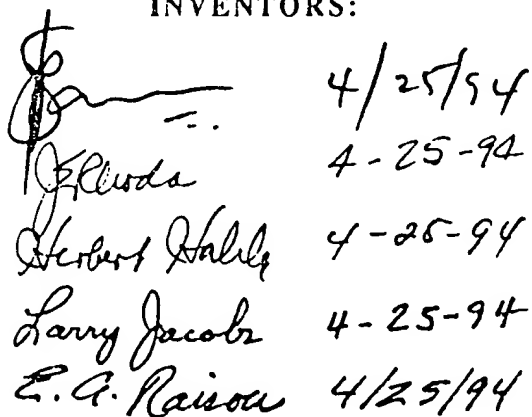 INVENTORS:
4/25/94
4-25-94
Herbert 4-25-94
Larry Jacobs 4-25-94
E. A. Raison 4/25/94